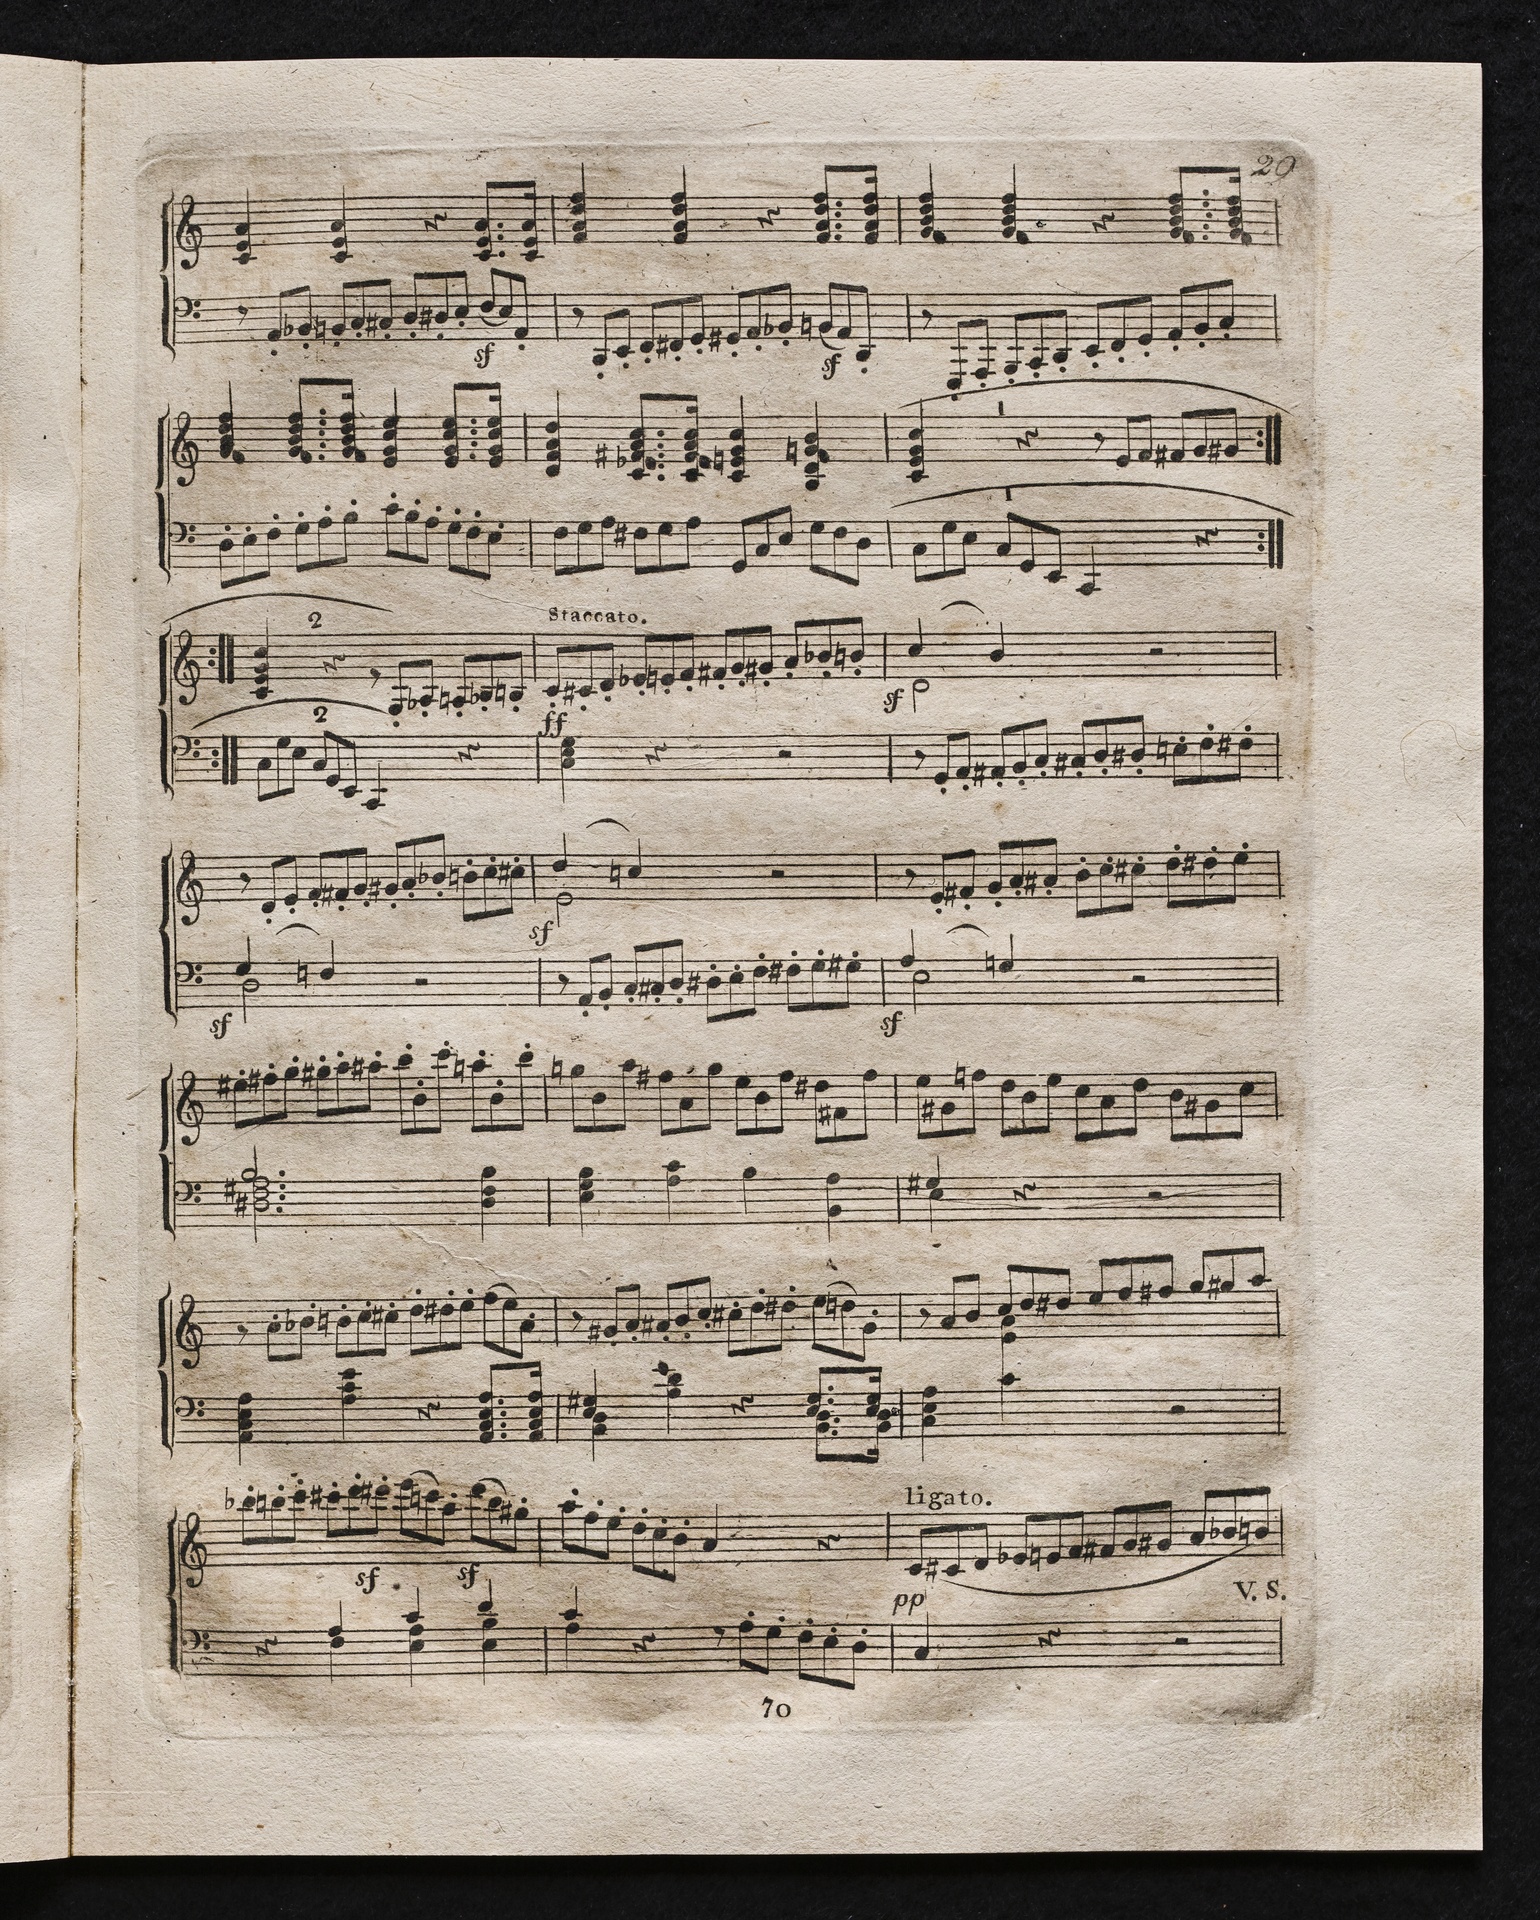 20
sf sf
1
1
2
Staccato.
2
ff sf
sf
sf sf
sf sf
ligato.
pp V. S.
70